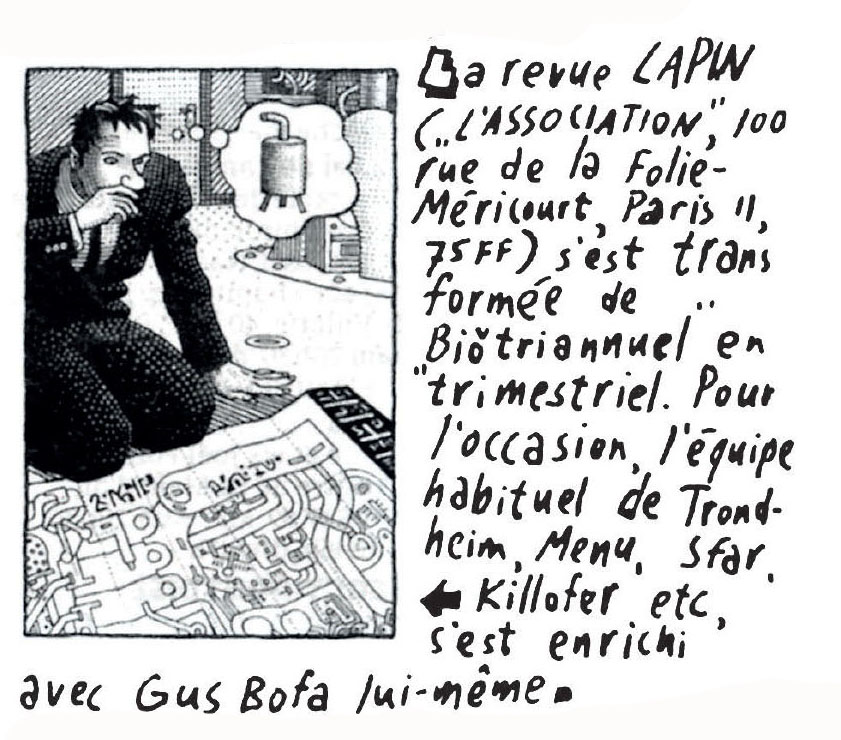 La revue LAPIN
(„L'ASSOCIATION", 100
rue de la Folie-
Méricourt, Paris 11,
75FF) s'est trans
formée de ..
Biŏtriannuel en
"trimestriel. Pour
l'occasion, l'équipe
habituel de Trond-
heim, Menu, Sfar,
← Killofer etc,
s'est enrichi
avec Gus Bofa lui-même.